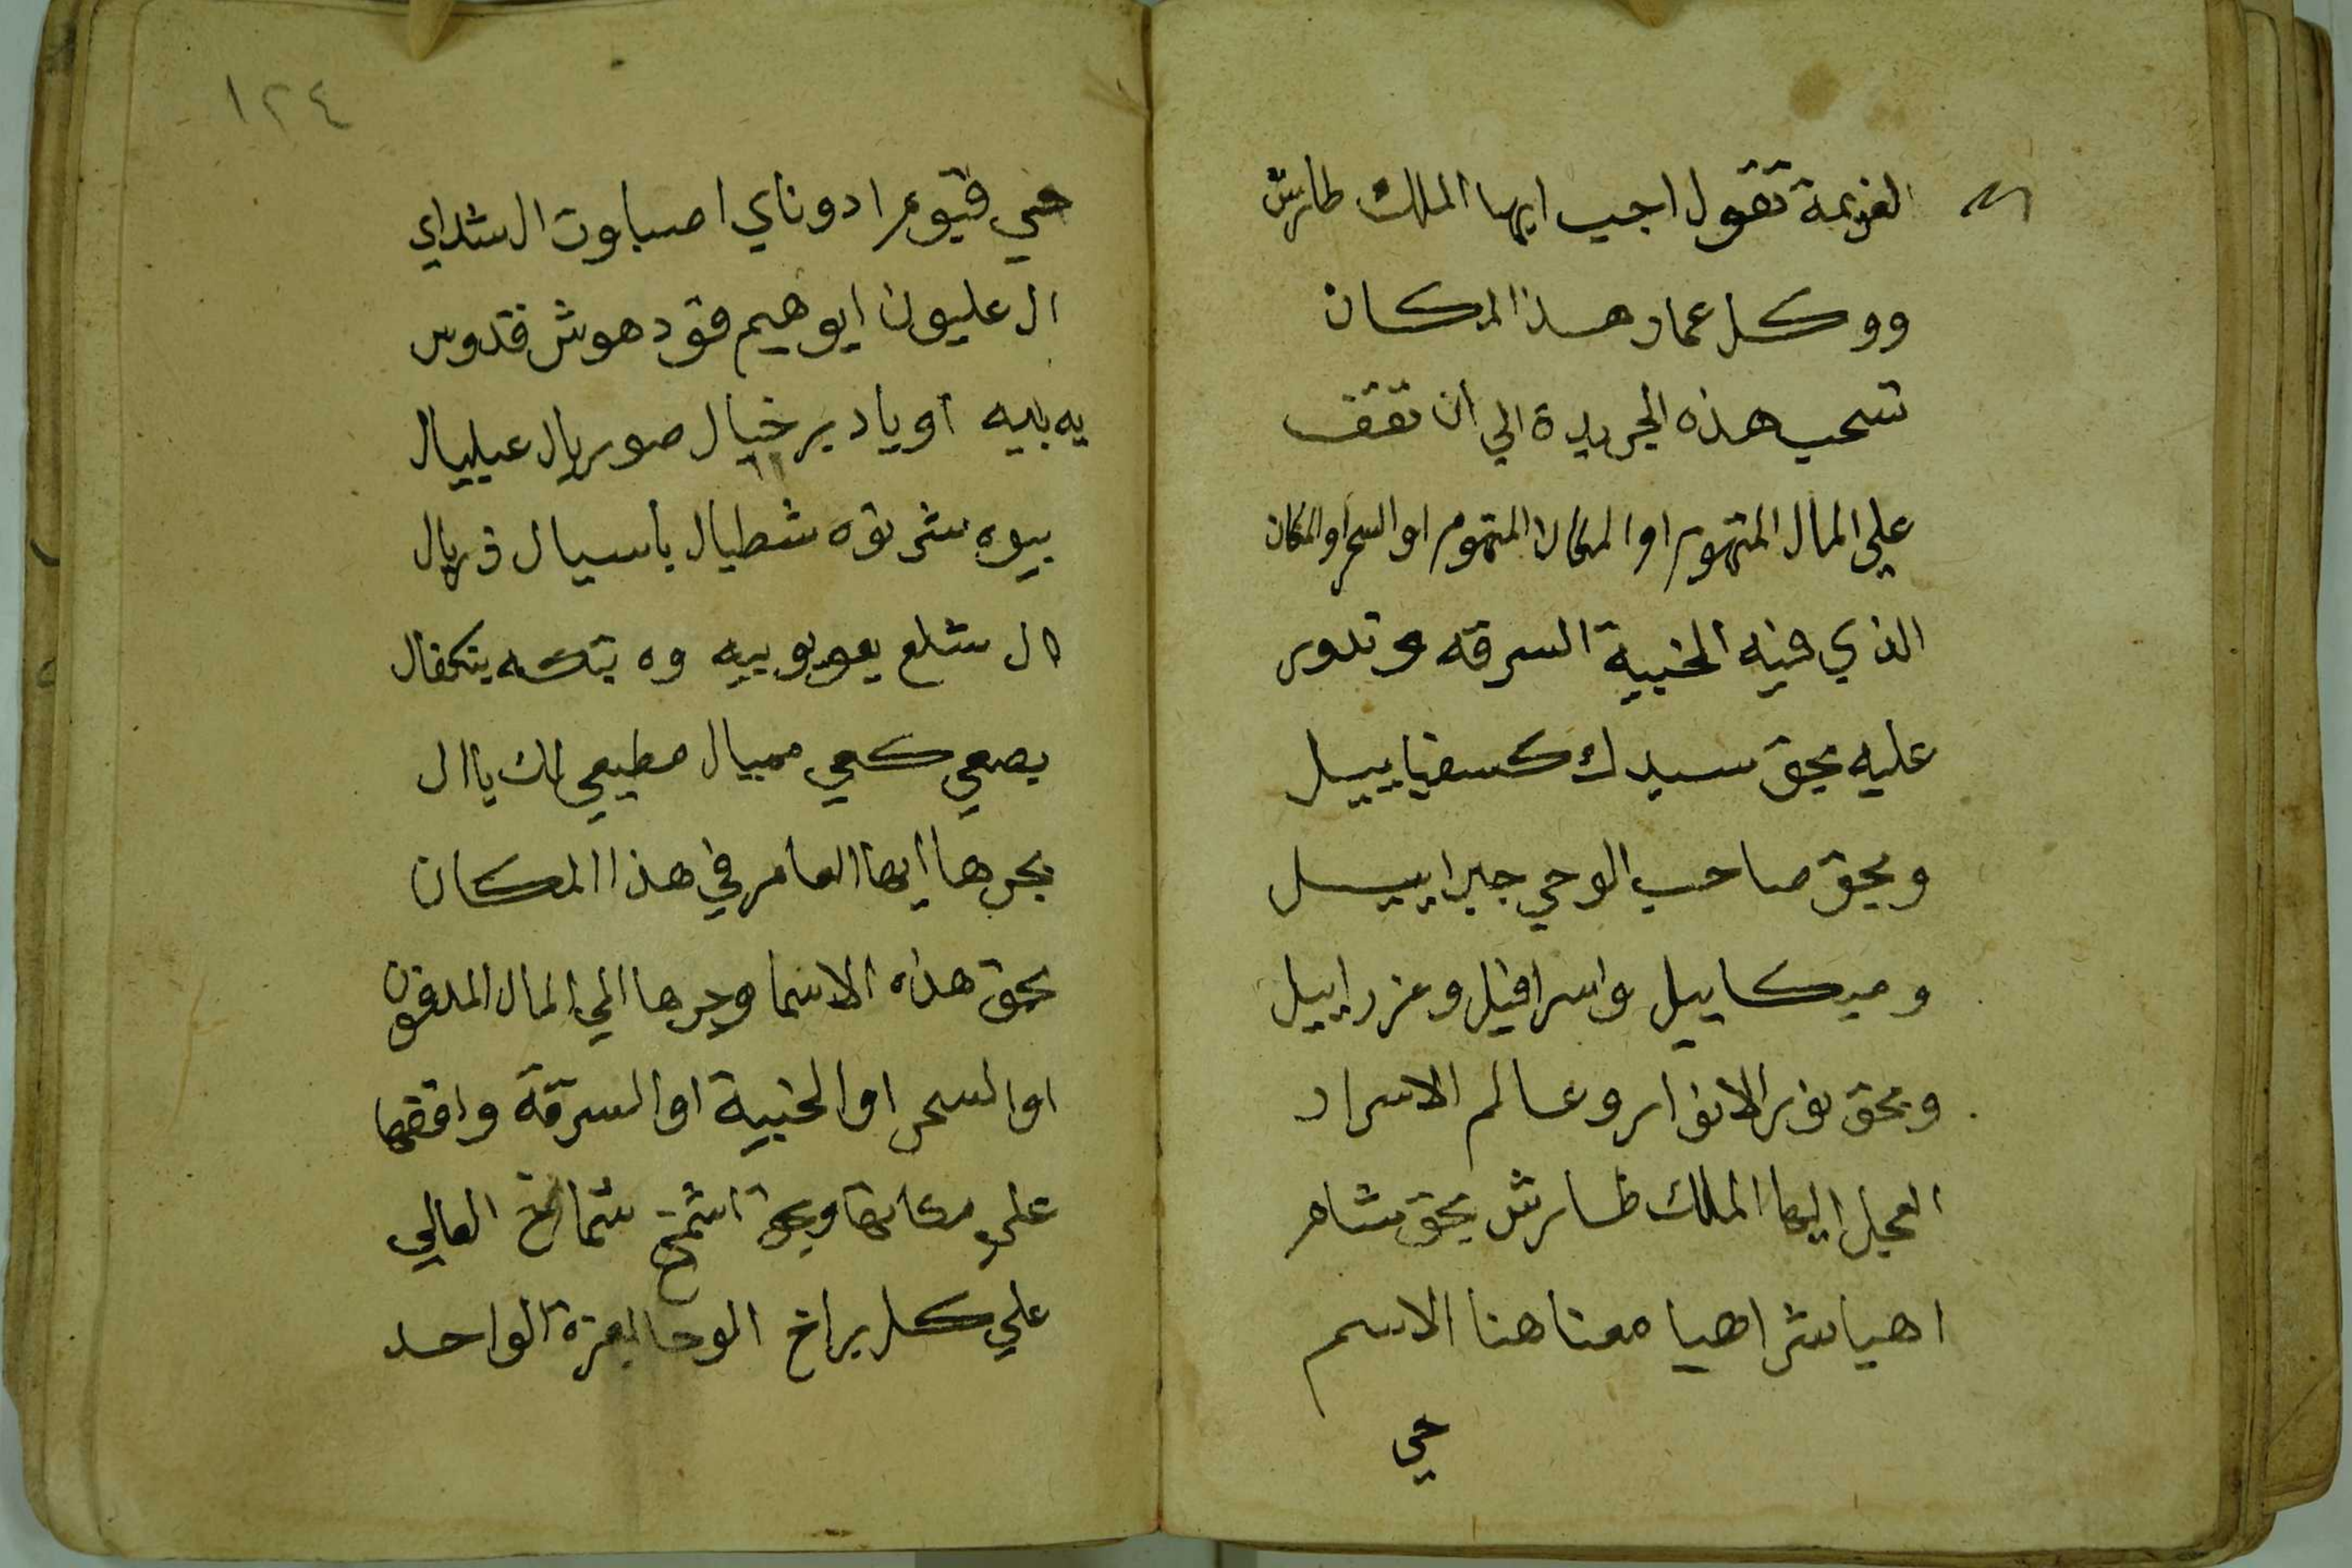 العزيمة تقول اجيب ايها الملك طارش
ووكل عمار هذا المكان
تسحب هذه الجريدة الي ان تقف
علي المال المتهوم او المكان المتهوم او السحر او المكان
الذي فيه الخبية السرقه وتدور
عليه بحق سيدك كسفياييل
وبحق صاحب الوحي جبراييل
وميكاييل واسرافيل وعزراييل
وبحق نور الانوار وعالم الاسرار
العجل ايها الملك طارش بحق شاهر
اهيا شراهيا معنا هنا الاسم
حي
١٢٤
حي قيوم ادوناي اصباوت ال شداي
ال عليون ايوهيم فقود هوش قدوس
يه بيه اوياد برخيال صوريال عيليال
بيوه شرنوه شطيال باسيال ذريال
ال شلع يعوبوبيه وه بتكه بتكفال
يصعي كعي ممييال مطيعي لك يا ال
بجرها ايها العامر في هذا المكان
بحق هذه الاسما وجرها الي المال المدفون
او السحر او الخبية او السرقة واقفها
علي مكانها وبحق اشمخ شماخ العالي
علي كل براخ الوحا بعزة الواحد